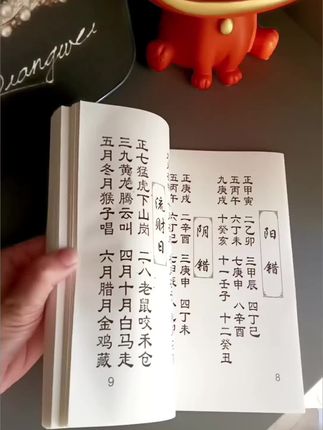 iangwei
阳错
正甲寅 二乙卯 三甲辰 四丁己
五丙午 六丁未 七庚申 八辛酉
九庚戌 十癸亥 十一壬子 十二癸丑
阴错
正庚戌 二辛酉 三庚申 四丁未
五丙午
8
流财日
正七猛虎下山岗 二八老鼠咬禾仓
三九黄龙腾云叫 四月十月白马走
五月冬月猴子唱 六月腊月金鸡藏
9